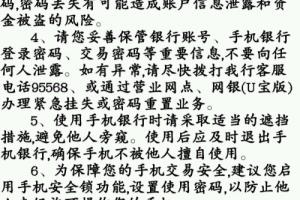 码,密码丢失有可能造成账户信息泄露和资
金被盗的风险。
4、请您妥善保管银行账号、手机银行
登录密码、交易密码等重要信息,不要向任
何人泄露。如有异常,请尽快拨打我行客服
电话95568、或通过营业网点、网银(U宝版)
办理紧急挂失或密码重置业务。
5、使用手机银行时请采取适当的遮挡
措施,避免他人旁窥。使用后应及时退出手
机银行,确保手机不被他人擅自使用。
6、为保障您的手机交易安全,建议您启
用手机安全锁功能,设置使用密码,以防止他